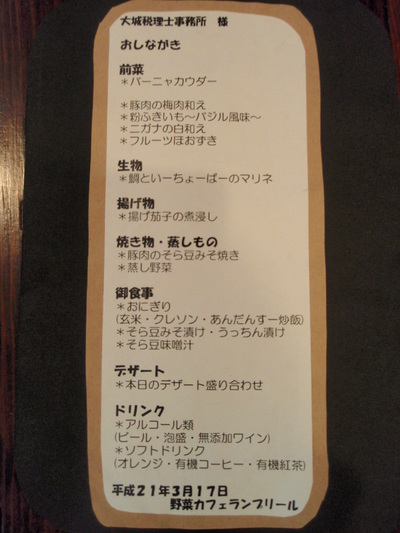 大城税理士事務所　様
おしながき
前菜
＊バーニャカウダー
＊豚肉の梅肉和え
＊粉ふきいも～バジル風味～
＊ニガナの白和え
＊フルーツほおずき
生物
＊鯛といーちょーばーのマリネ
揚げ物
＊揚げ茄子の煮浸し
焼き物・蒸しもの
＊豚肉のそら豆みそ焼き
＊蒸し野菜
御食事
＊おにぎり
(玄米・クレソン・あんだんすー炒飯)
＊そら豆みそ漬け・うっちん漬け
＊そら豆味噌汁
デザート
＊本日のデザート盛り合わせ
ドリンク
＊アルコール類
(ビール・泡盛・無添加ワイン)
＊ソフトドリンク
(オレンジ・有機コーヒー・有機紅茶)
平成２１年３月１７日
野菜カフェランブリール